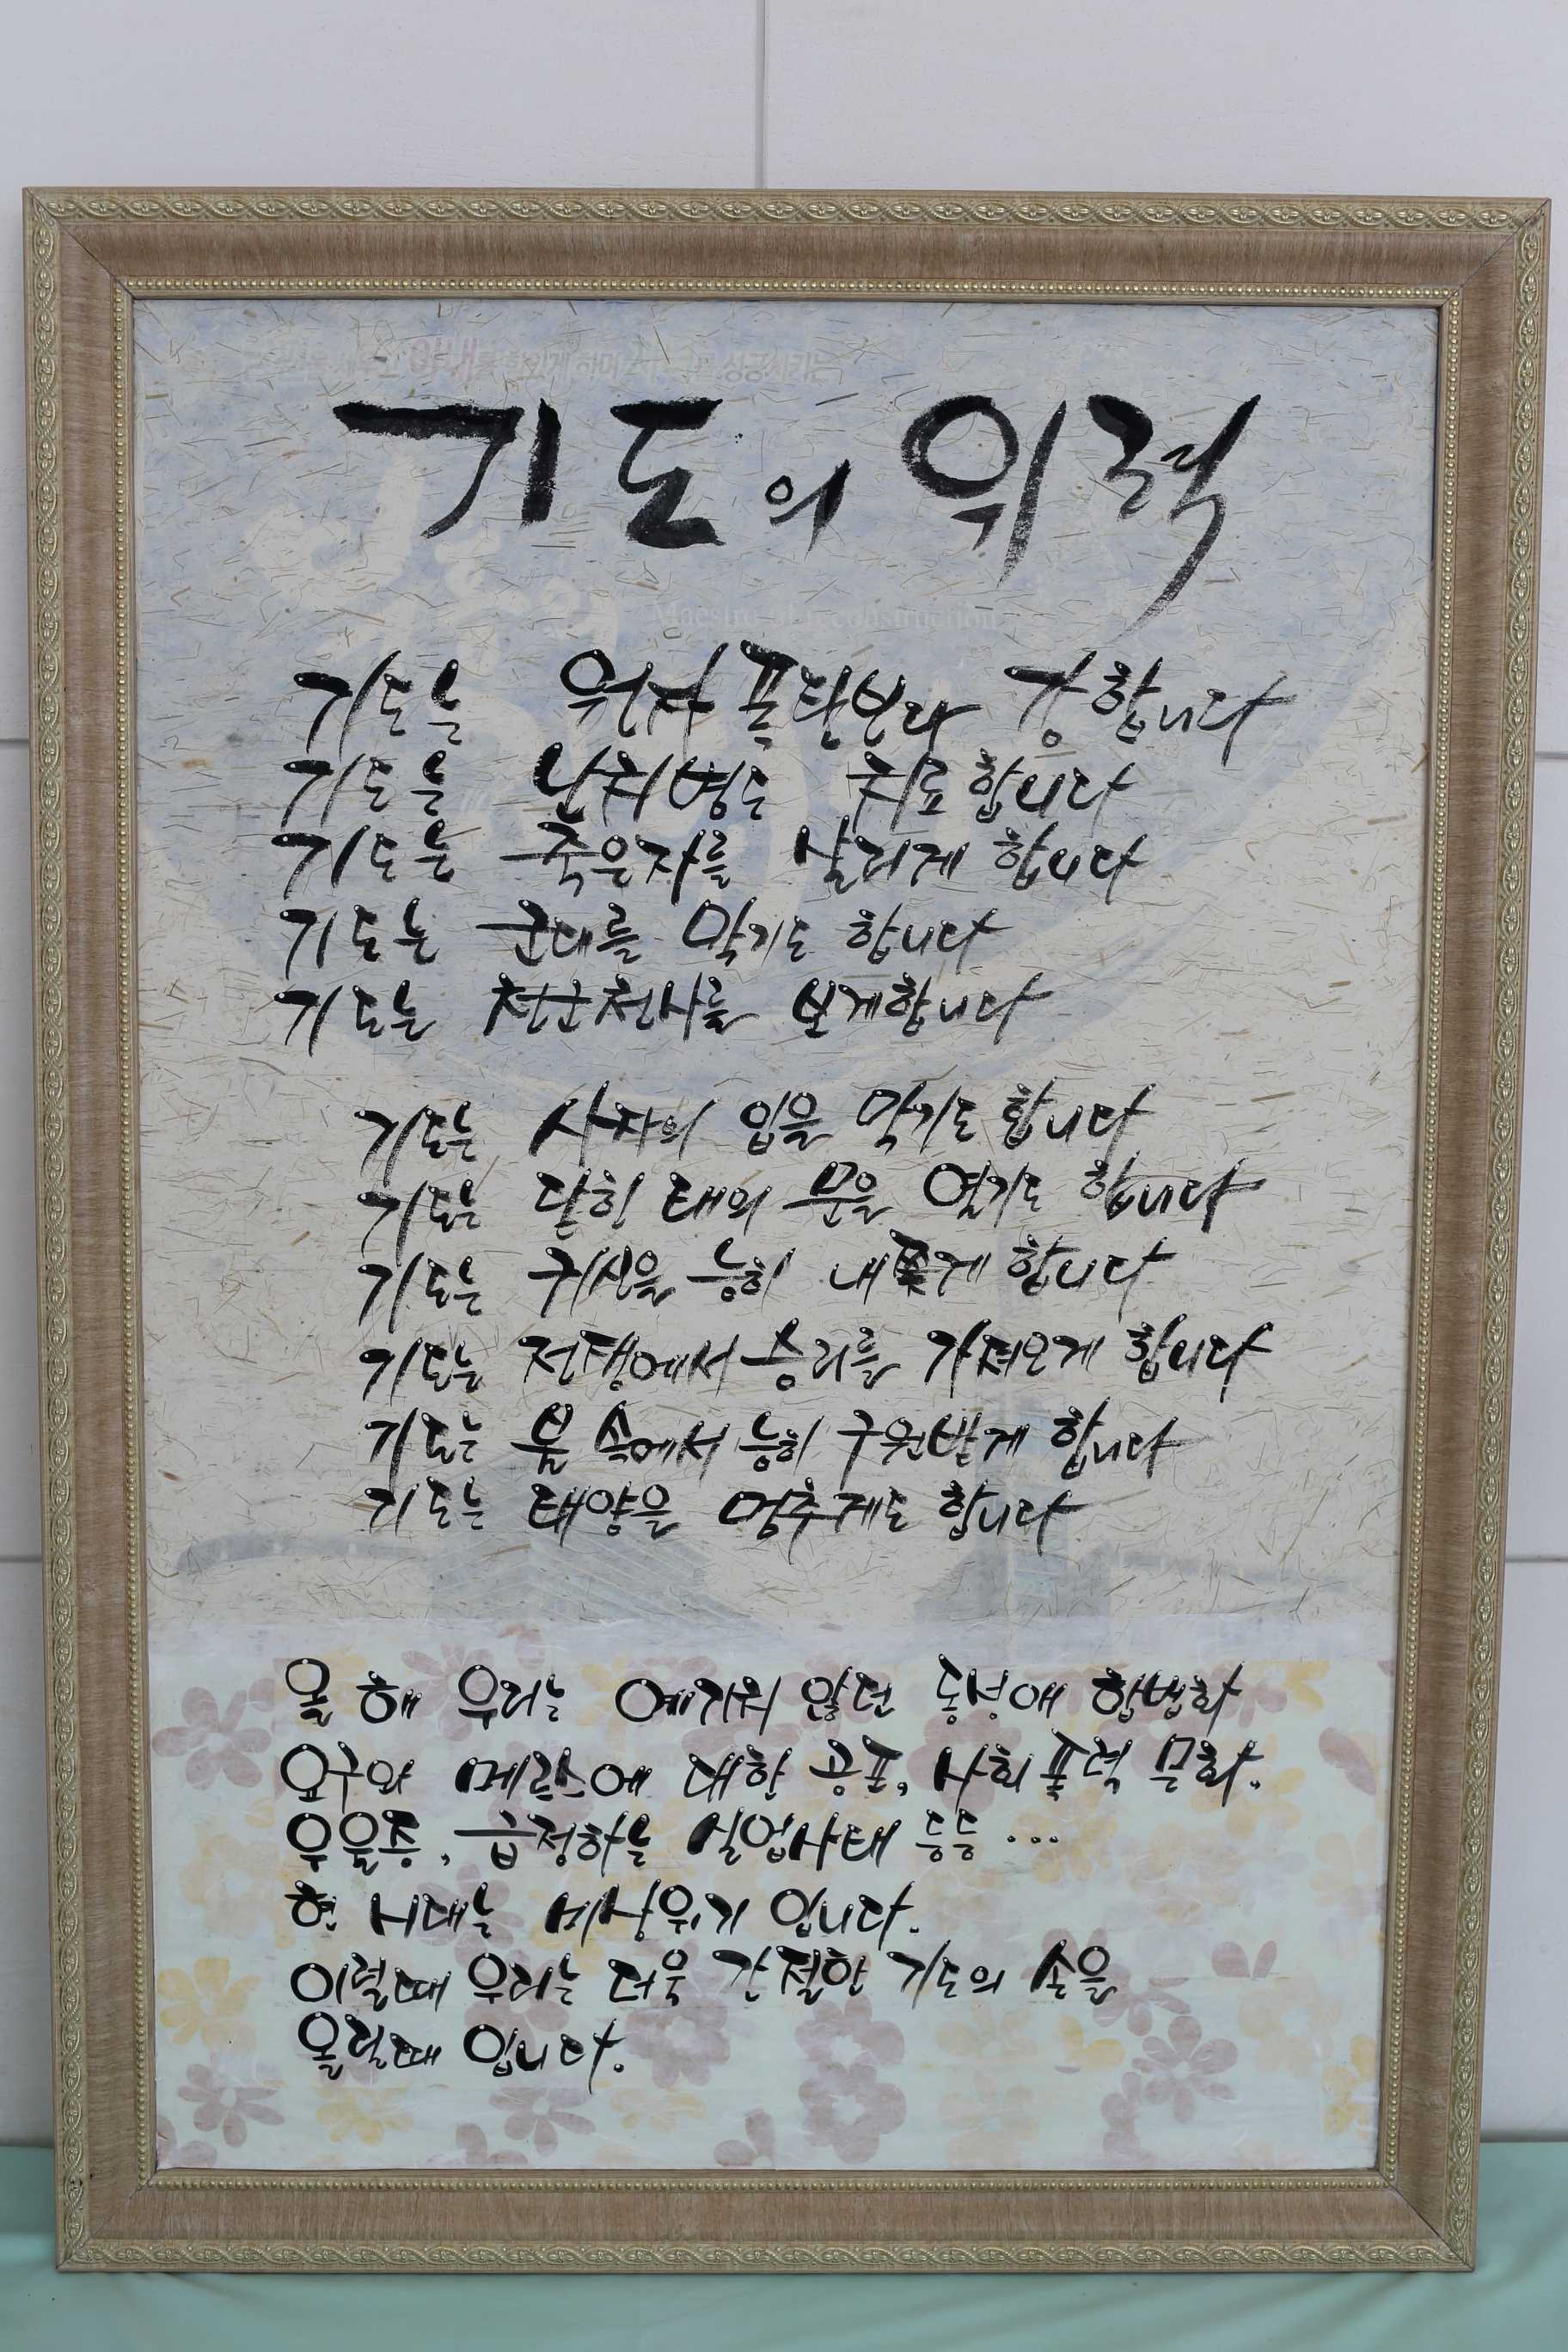 기도의 위력
Maestro of reconstruction
기도는 원자폭탄보다 강합니다
기도는 난치병도 치료합니다
기도는 죽은자를 살리게 합니다
기도는 군대를 막기도 합니다
기도는 천군천사를 보게합니다
기도는 사자의 입을 막기도 합니다
기도는 닫힌 태의 문을 열기도 합니다
기도는 귀신을 능히 내쫓게 합니다
기도는 전쟁에서 승리를 가져오게 합니다
기도는 불 속에서 능히 구원받게 합니다
기도는 태양을 멈추게도 합니다
올해 우리는 예기치 않던 동성애 합법화
요구와 메르스에 대한 공포, 사회폭력 문화.
우울증, 급정하는 실업사태 등등 ...
현 시대는 세상위기 입니다.
이럴때 우리는 더욱 간절한 기도의 손을
올릴때 입니다.